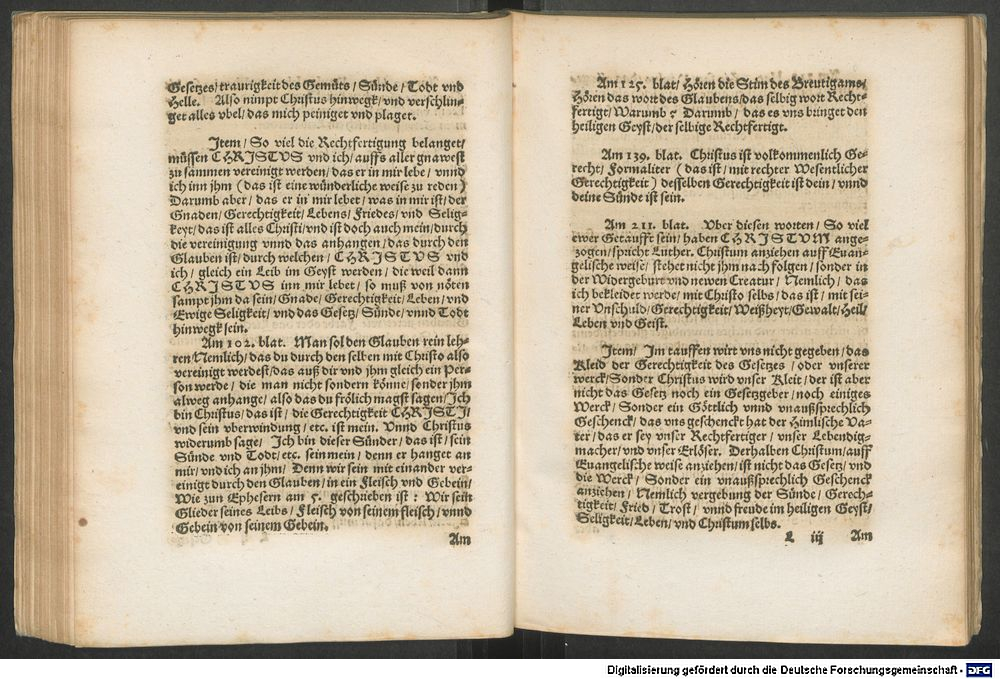 Gesetzes/ traurigkeit des Gemüts/ Sünde/ Todt vnd
Helle. Also nimpt Christus hinwegk/ vnd verschlin-
get alles vbel/ das mich peiniget vnd plaget.
Item/ So viel die Rechtfertigung belanget/
müssen CHRISTVS vnd ich/ auffs aller gnawest
zu sammen vereinigt werden/ das er in mir lebe/ vnnd
ich inn jhm (das ist eine wünderliche weise zu reden)
Darumb aber/ das er in mir lebet/ was in mir ist/ der
Gnaden/ Gerechtigkeit/ Lebens/ Friedes/ vnd Selig-
keyt/ das ist alles Christi/ vnd ist doch auch mein/ durch
die vereinigung vnnd das anhangen/ das durch den
Glauben ist/ durch welchen/ CHRISTVS vnd
ich/ gleich ein Leib im Geyst werden/ die weil dann
CHRISTVS inn mir lebet/ so muß von nöten
sampt jhm da sein/ Gnade/ Gerechtigkeit/ Leben/ vnd
Ewige Seligkeit/ vnd das Gesetz/ Sünde/ vnnd Todt
hinwegk sein.
Am 102. blat. Man sol den Glauben rein leh-
ren/ Nemlich/ das du durch den selben mit Christo also
vereinigt werdest/ das auß dir vnd jhm gleich ein Per-
son werde/ die man nicht sondern könne/ sonder jhm
alweg anhange/ also das du frölich magst sagen/ Ich
bin Christus/ das ist/ die Gerechtigkeit CHRISTI/
vnd sein vberwindung/ etc. ist mein. Vnnd Christus
widerumb sage/ Ich bin dieser Sünder/ das ist/ sein
Sünde vnd Todt/ etc. sein mein/ denn er hanget an
mir/ vnd ich an jhm/ Denn wir sein mit einander ver-
einigt durch den Glauben/ in ein Fleisch vnd Gebein/
Wie zun Ephesern am 5. geschrieben ist: Wir sein
Glieder seines Leibs/ Fleisch von seinem fleisch/ vnnd
Gebein von seinem Gebein.
Am
Am 125. blat/ Hören die Stim des Breutigams/
Hören das wort des Glaubens/ das selbig wort Recht-
fertigt/ Warumb? Darumb/ das es vns bringet den
heiligen Geyst/ der selbige Rechtfertigt.
Am 139. blat. Christus ist volkommenlich Ge-
recht/ Formaliter (das ist/ mit rechter Wesentlicher
Gerechtigkeit) desselben Gerechtigkeit ist dein/ vnnd
deine Sünde ist sein.
Am 211. blat. Vber diesen worten/ So viel
ewer Getaufft sein/ haben CHRISTVM ange-
zogen/ spricht Luther. Christum anziehen auff Euan-
gelische weise/ stehet nicht jhm nach folgen/ sonder in
der Widergeburt vnd newen Creatur/ Nemlich/ das
ich bekleidet werde/ mit Christo selbs/ das ist/ mit sei-
ner Vnschuld/ Gerechtigkeit/ Weißheyt/ Gewalt/ Heil/
Leben vnd Geist.
Item/ Im tauffen wirt vns nicht gegeben/ das
Kleid der Gerechtigkeit des Gesetzes/ oder vnserer
werck/ Sonder Christus wird vnser Kleit/ der ist aber
nicht das Gesetz noch ein Gesetzgeber/ noch einiges
Werck/ Sonder ein Göttlich vnnd vnaußsprechlich
Geschenck/ das vns geschenckt hat der Himlische Va-
ter/ das er sey vnser Rechtfertiger/ vnser Lebendig-
macher/ vnd vnser Erlöser. Derhalben Christum/ auff
Euangelische weise anziehen/ ist nicht das Gesetz/ vnd
die Werck/ Sonder ein vnaußsprechlich Geschenck
anziehen/ Nemlich vergebung der Sünde/ Gerech-
tigkeit/ Fried/ Trost/ vnnd freude im heiligen Geyst/
Seligkeit/ Leben/ vnd Christum selbs.
L iij Am
Digitalisierung gefördert durch die Deutsche Forschungsgemeinschaft - DFG